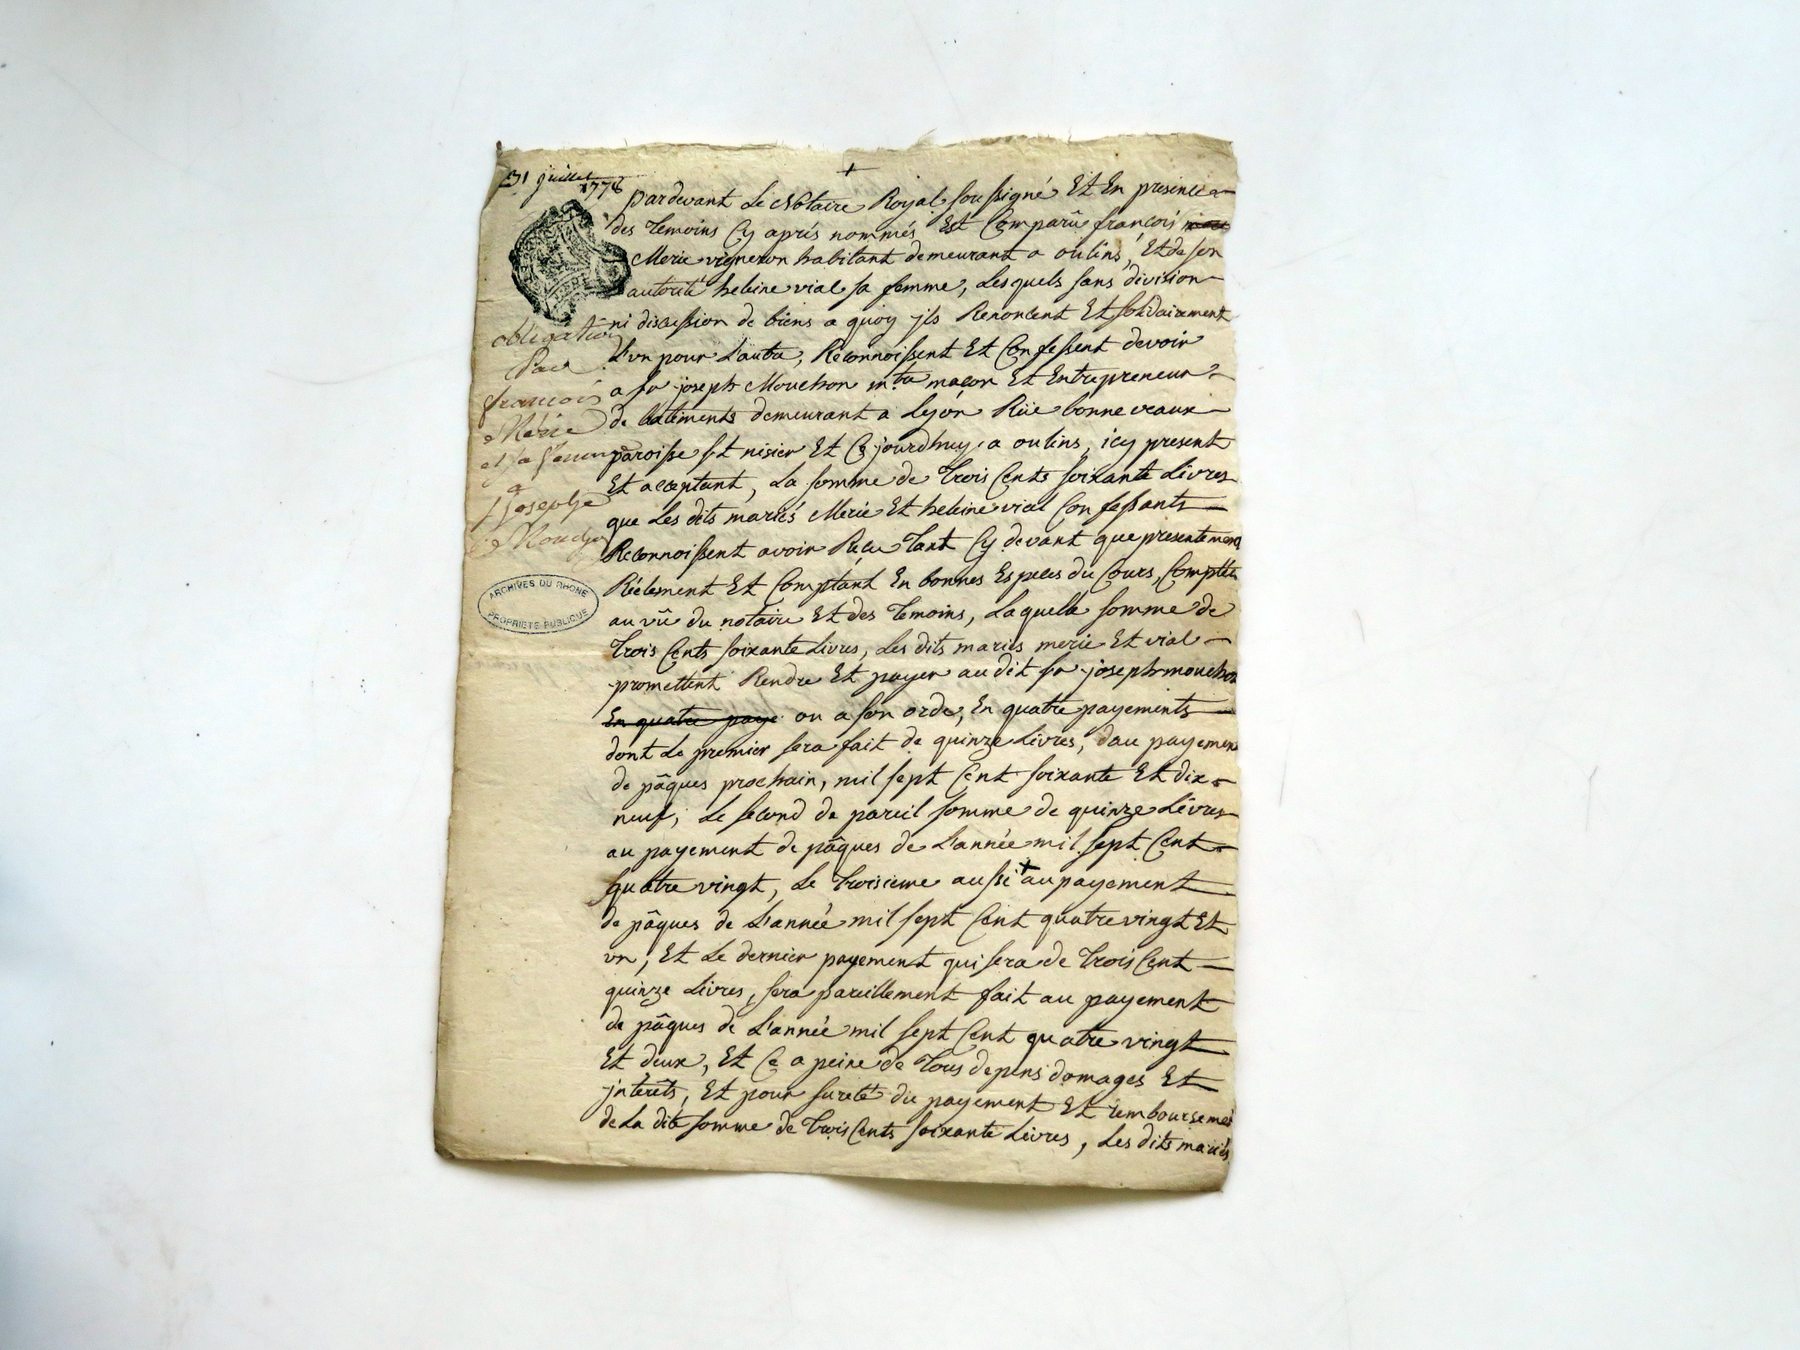 31 juillet
1778
pardevant Le Notaire Royal soussigné Et En presence
des Temoins Cy aprés nommés Est Comparû françois
Merie vigneron habitant demeurant a oulins, Et de son
autorité heleine vial sa femme, Lesquels sans division
ni discussion de biens a quoy jls Renoncent Et solidairement
L'un pour L'autre, Reconnoissent Et Confessent devoir
a sr joseph Mouchon mtre maçon Et Entrepreneur
de batiments demeurant a Lyon Rüe bonneveaux
paroisse st nisier Et Ce jourdhuy a oulins, icy present
Et acceptant, La somme de Trois Cents soixante Livres
que Les dits mariés Merie Et heleine vial Confessants
Reconnoissent avoir Recu Tant Cy devant que presentement
Réelement Et Comptant En bonnes Especes du Cours, Comptées
au vû du notaire Et des Temoins, Laquelle somme de
Trois Cents soixante Livres, Les dits mariés merie Et vial
promettent Rendre Et payer audit sr joseph mouchon
En quatre paye ou a son ordre, En quatre payements
dont Le premier sera fait de quinze Livres, dau payement
de pâques prochain, mil sept Cent soixante Et dix
neuf; Le second de pareil somme de quinze Livres
au payement de pâques de L'année mil sept Cent
quatre vingt, Le Troisieme aussi + au payement
de pâques de L'année mil sept Cent quatre vingt Et
un, Et Le dernier payement qui sera de Trois Cent
quinze Livres, sera pareillement fait au payement
de pâques de L'année mil sept Cent quatre vingt
Et deux, Et Ce a peine de Tous depens domages Et
jnterêts, Et pour sureté du payement Et remboursement
de La dite somme de Trois Cents soixante Livres, Les dits mariés
obligation
Par
françois
Mérie
et sa femme
a
Joseph
Mouchon
ARCHIVES DU RHONE
PROPRIETE PUBLIQUE